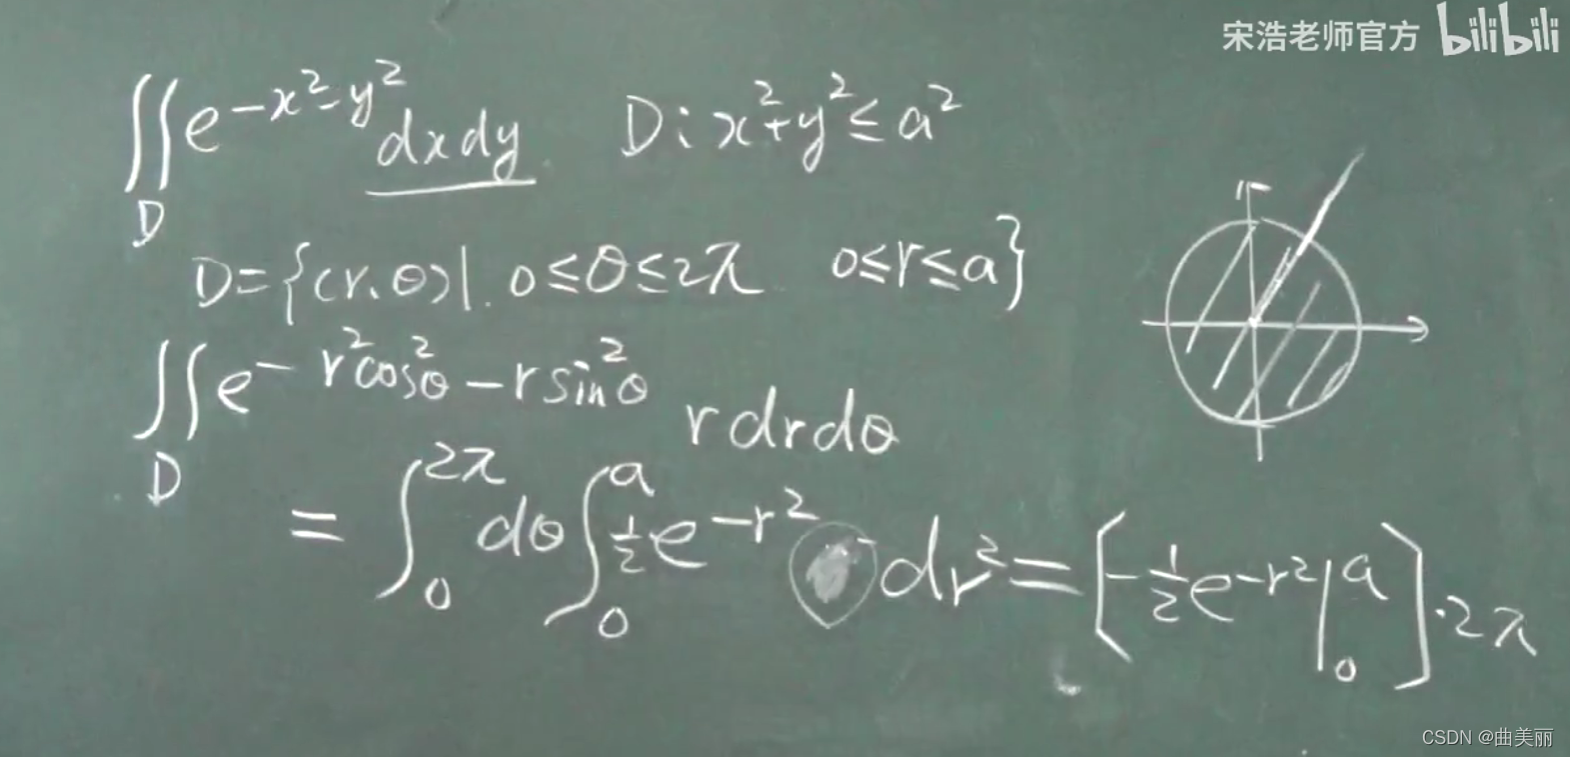 宋浩老师官方 bilibili
∬_D e^{-x²-y²} dxdy D: x²+y²≤a²
D={(r,θ)|. 0≤θ≤2π 0≤r≤a}
∬_D e^{-r²cos²θ-r sin²θ} r dr dθ
= ∫_0^{2π} dθ ∫_0^a ½ e^{-r²} dr² = [-½ e^{-r²}|_0^a]·2π
CSDN @曲美丽